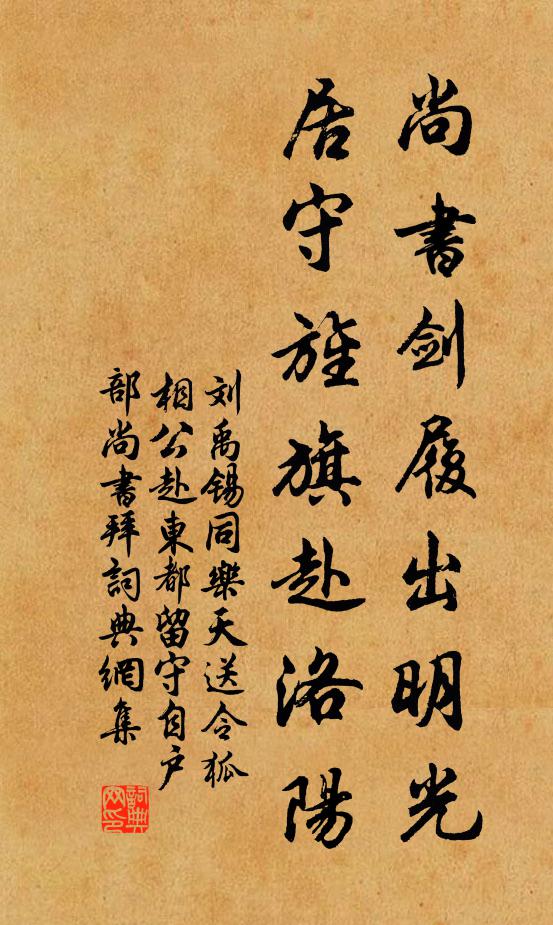 尚書劍履出明光
居守旌旗赴洛陽
刘禹锡同樂天送令狐
相公赴東都留守自户
部尚書拜詞典網集
詞典网印